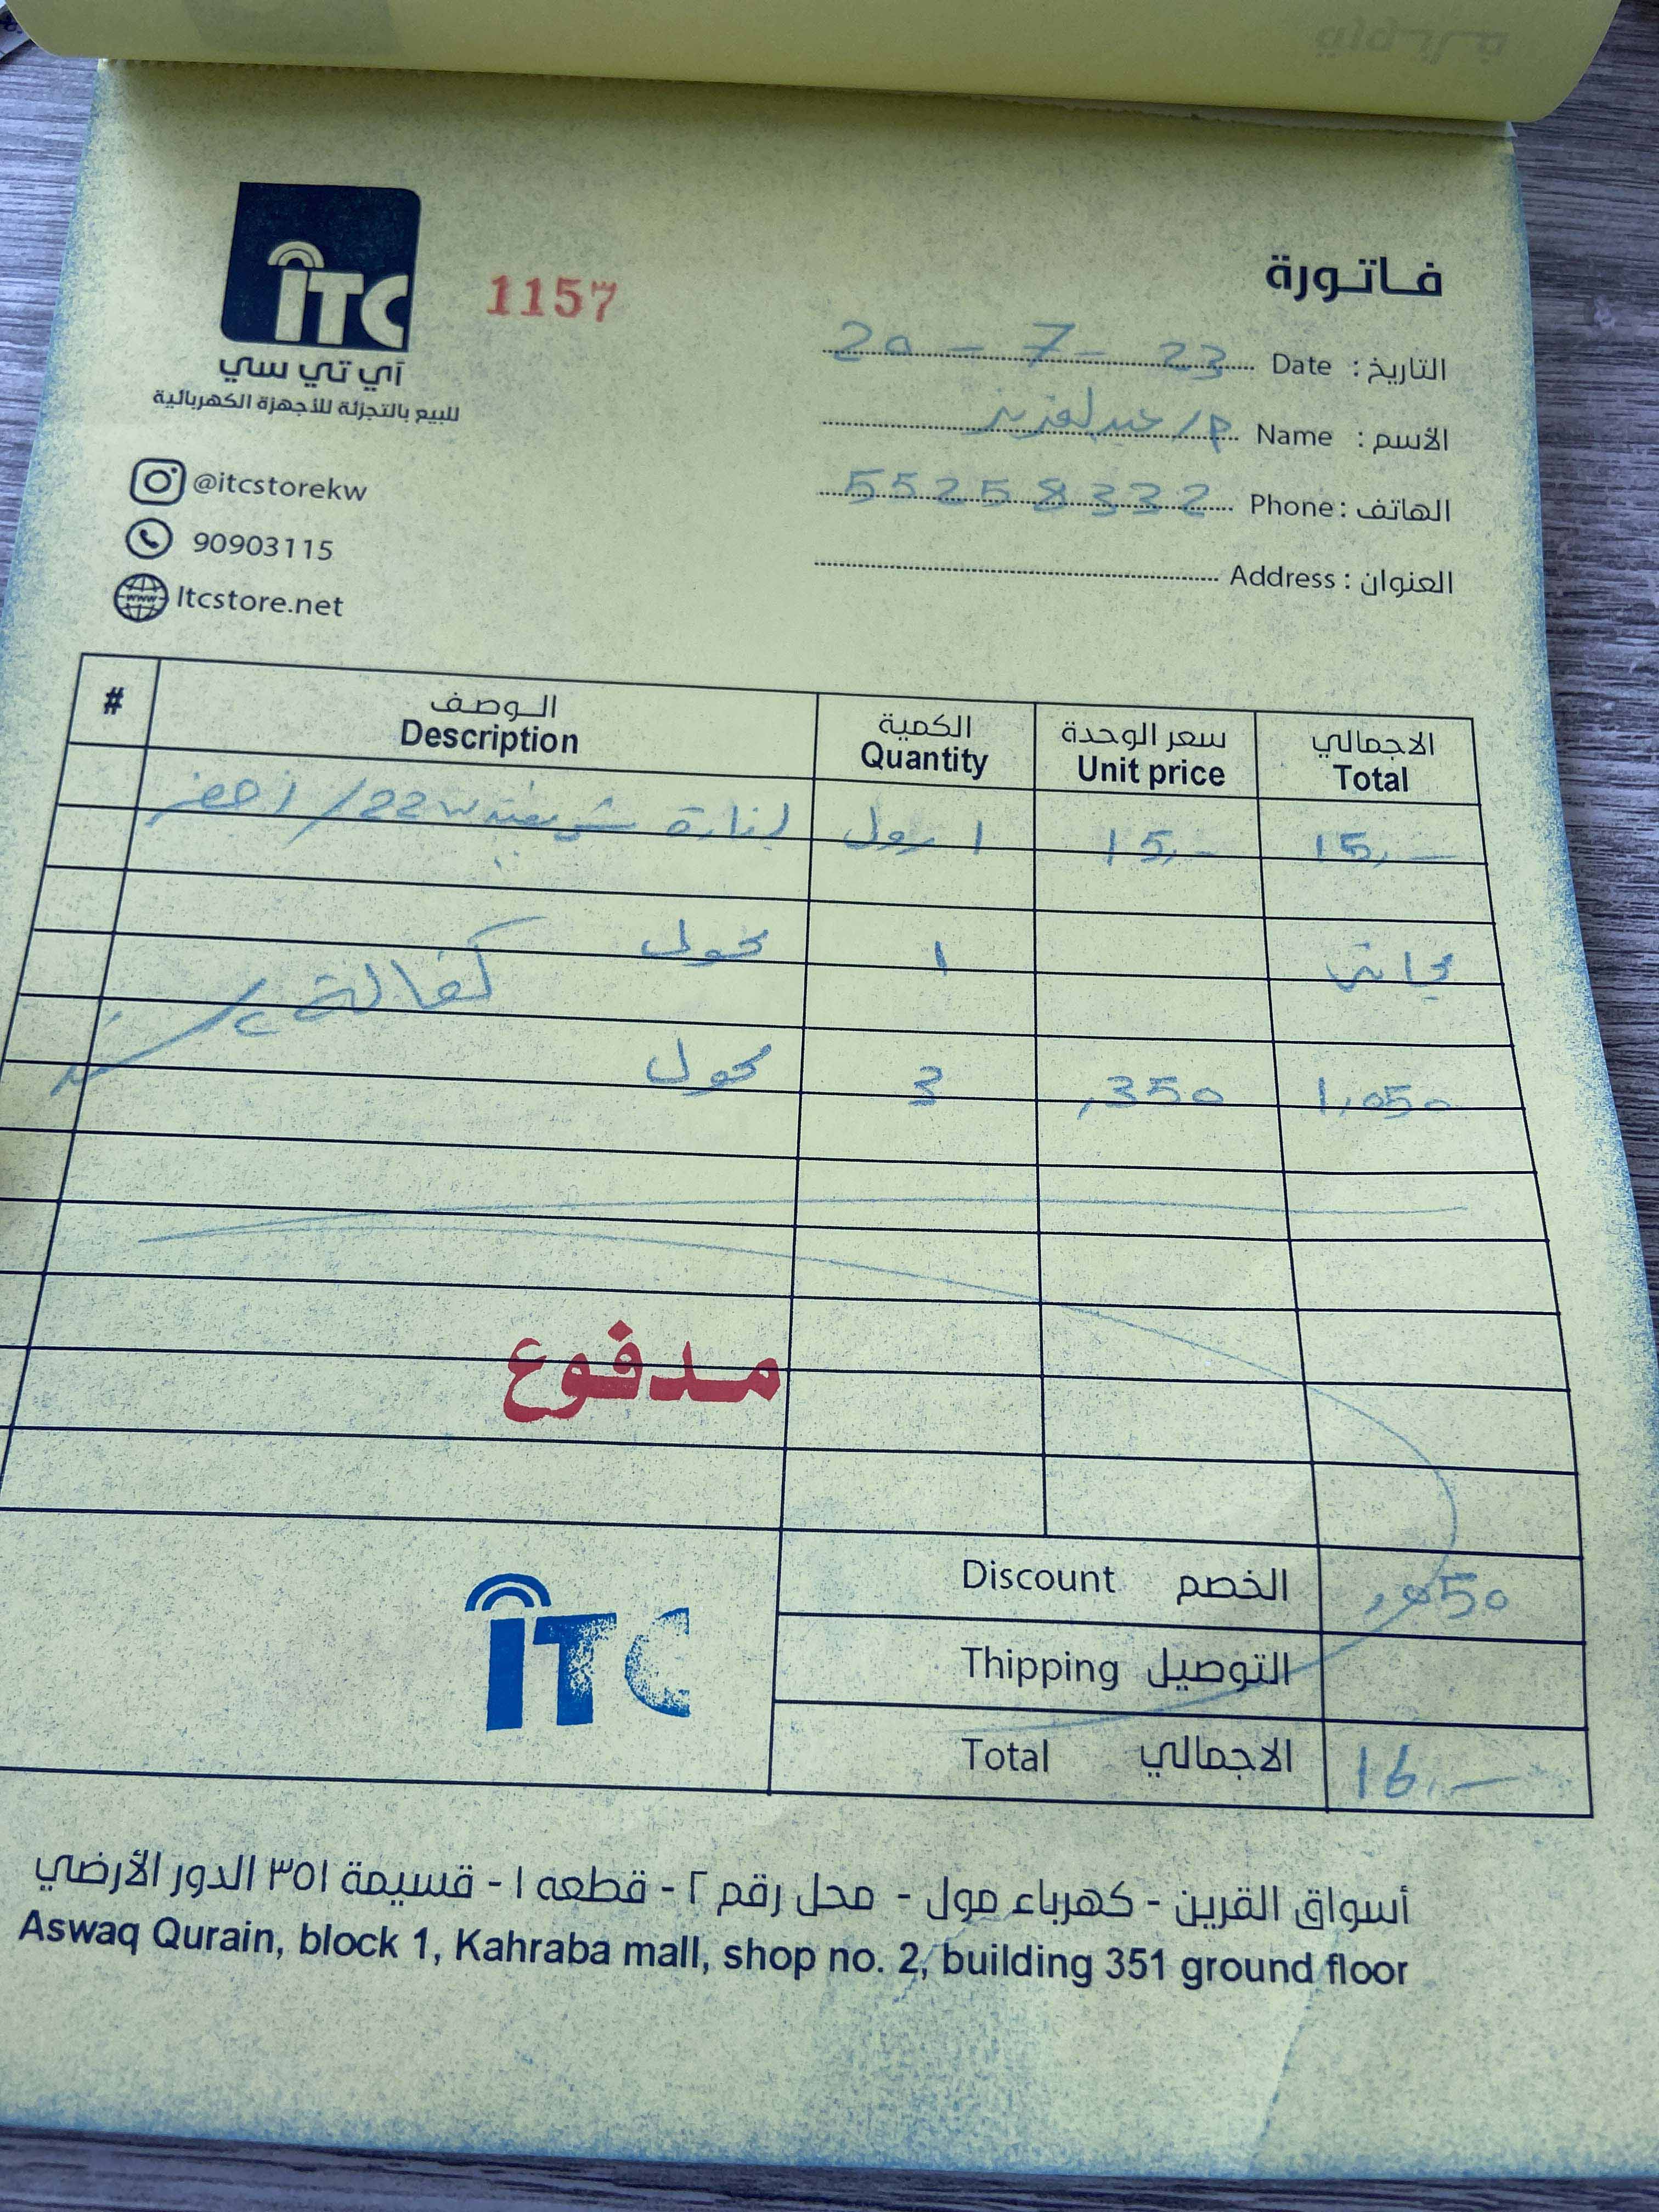 ITC
آي تي سي
للبيع بالتجزئة للأجهزة الكهربائية
1157
@itcstorekw
90903115
Itcstore.net
فـاتـورة
التاريخ : Date 20 - 7 - 23
الأسم : Name م/عبدالعزيز
الهاتف : Phone 55258332
العنوان : Address
# الـوصف Description الكمية Quantity سعر الوحدة Unit price الاجمالي Total
إنارة 22w / أخضر 1 رول 15,- 15,-
محول 1 مجاني
كفالة
محول 3 ,350 1,050
مدفوع
Discount الخصم ,050
Thipping التوصيل
Total الاجمالي 16,-
ITC
أسواق القرين - كهرباء مول - محل رقم ٢ - قطعه ١ - قسيمة ٣٥١ الدور الأرضي
Aswaq Qurain, block 1, Kahraba mall, shop no. 2, building 351 ground floor